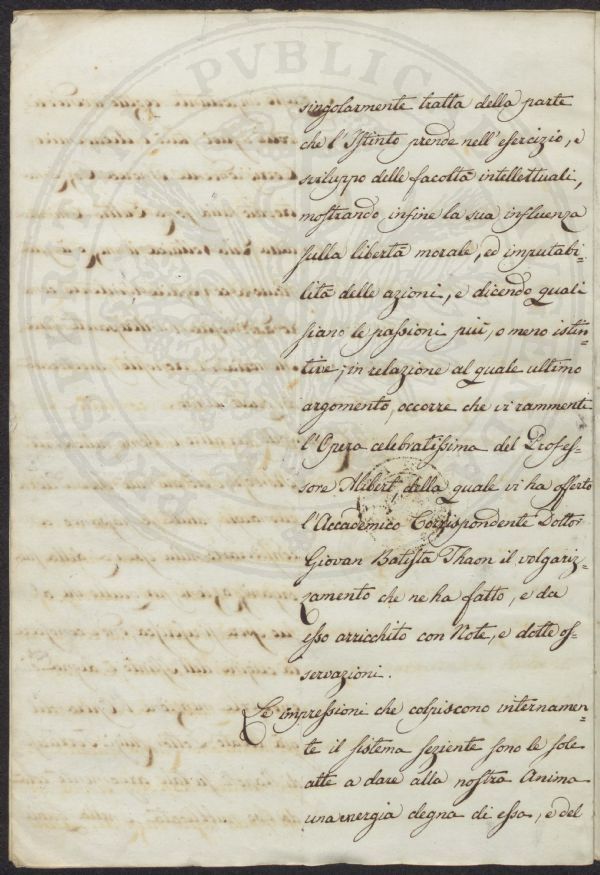 singolarmente tratta della parte
che l'Istinto prende nell'esercizio, e
sviluppo delle facoltà intellettuali,
mostrando infine la sua influenza
sulla libertà morale, ed imputabi-
lità delle azioni, e dicendo quali
siano le passioni più, o meno istin-
tive; in relazione al quale ultimo
argomento, occorre che vi rammenti
l'Opera celebratissima del Profes-
sore Alibert, della quale vi ha offerto
l'Accademico Corrispondente Dottor
Giovan Batista Thaon il volgariz-
zamento che ne ha fatto, e da
esso arricchito con Note, e dotte os-
servazioni.
Le impressioni che colpiscono internamen-
te il sistema seziente sono le sole
atte a dare alla nostra Anima
una energia degna di essa, e del